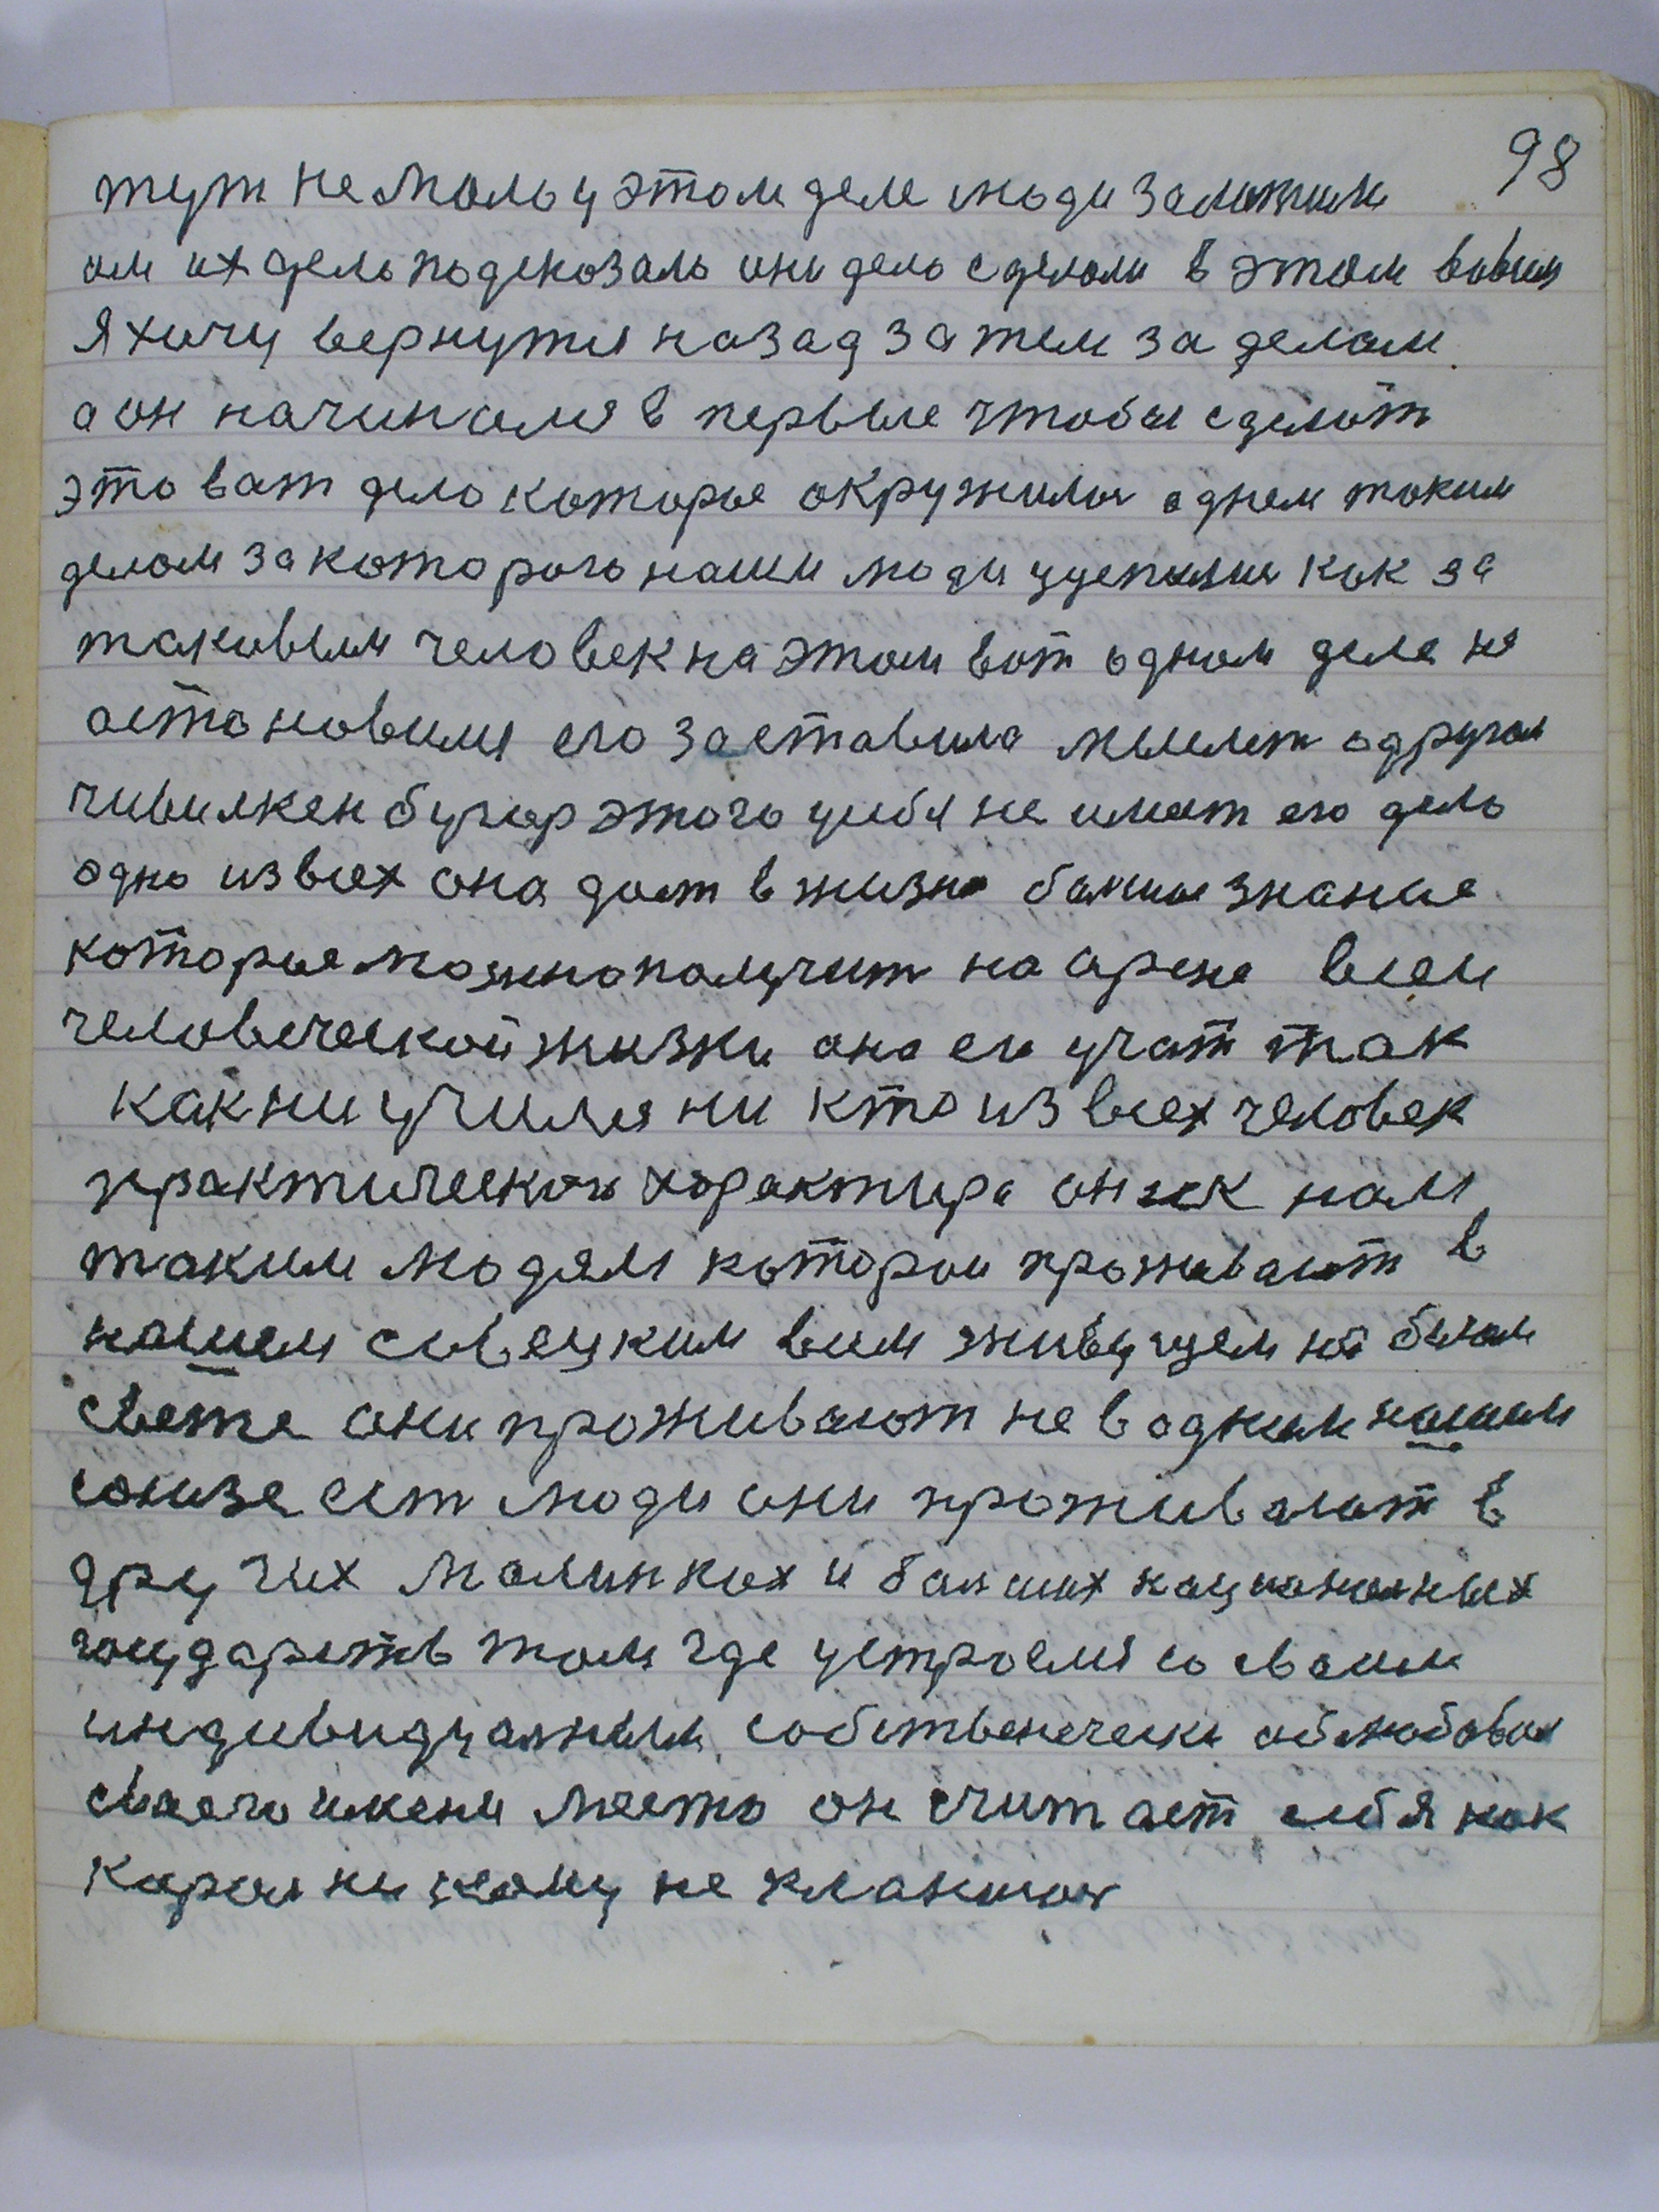 98
тут не мало у этом деле люди заложили
им их дело подсказало они дело сделали в этом во всим
я хочу вернутся назад за тем за делам
а он начинался в первые чтобы сделат
это вот дело которое окружилос аднем таким
делам за которого наши люди уцепилис как за
таковым человек на этом вот одном деле не
астановился его заставила мыслит о другом
чивилкен бугор этого у себя не имеет его дело
одно из всех она дает в жизне балшие знание
которые можно получит на арене всеи
человеческои жизни она ея учат так
как ни учился ни кто из всех человек
практическои характира он как нам
таким людям которои проживают в
нашем совецким всим живущем на белам
свете они проживают не в одним нашим
союзе ест люди они проживают в
других малинких и балших националных
государств там где устроелся со своим
индивидуалным собственически облюбовал
своего имени место он считает себя как
карол ни кому не кланится